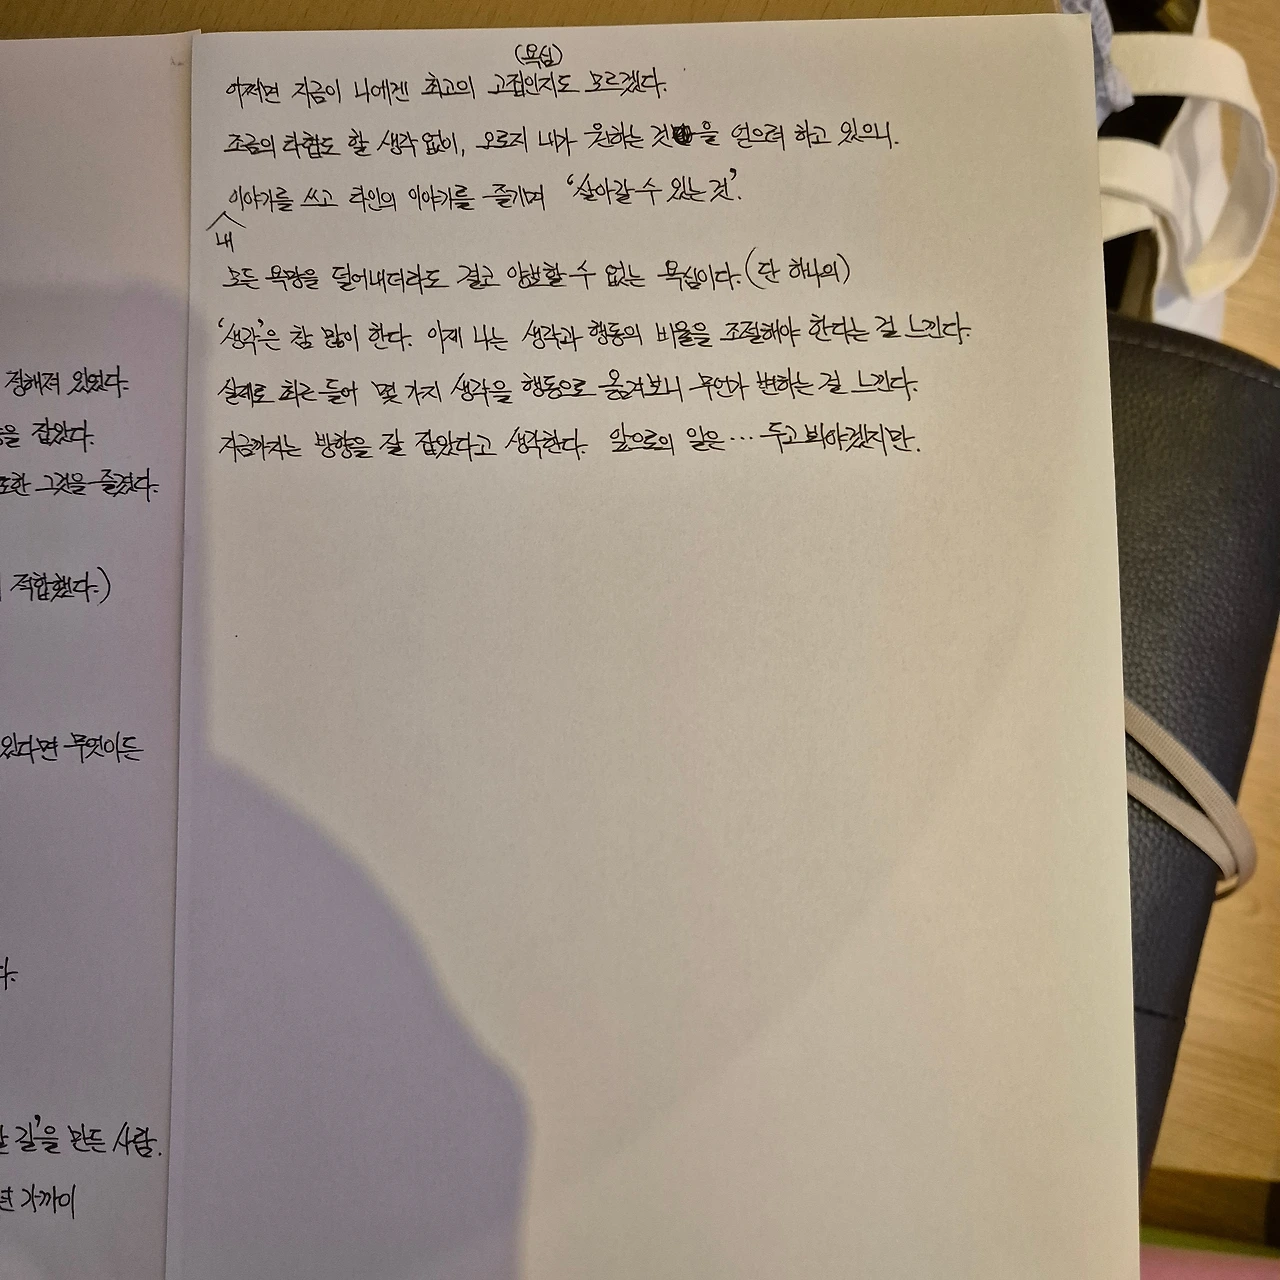 정해져 있었다.
을 잡았다.
또한 그것을 즐겼다.
적합했다.)
있다면 무엇이든
다.
길'을 만든 사람.
가까이
(욕심)
어쩌면 지금이 나에겐 최고의 고집인지도 모르겠다.
조금의 타협도 할 생각 없이, 오로지 내가 원하는 것을 얻으려 하고 있으니.
이야기를 쓰고 타인의 이야기를 즐기며 '살아갈 수 있는 것'.
내
모든 욕망을 덜어내더라도 결코 양보할 수 없는 욕심이다. (단 하나의)
'생각'은 참 많이 한다. 이제 나는 생각과 행동의 비율을 조절해야 한다는 걸 느낀다.
실제로 최근 들어 몇 가지 생각을 행동으로 옮겨보니 무언가 변하는 걸 느낀다.
지금까지는 방향을 잘 잡았다고 생각한다. 앞으로의 일은… 두고봐야겠지만.